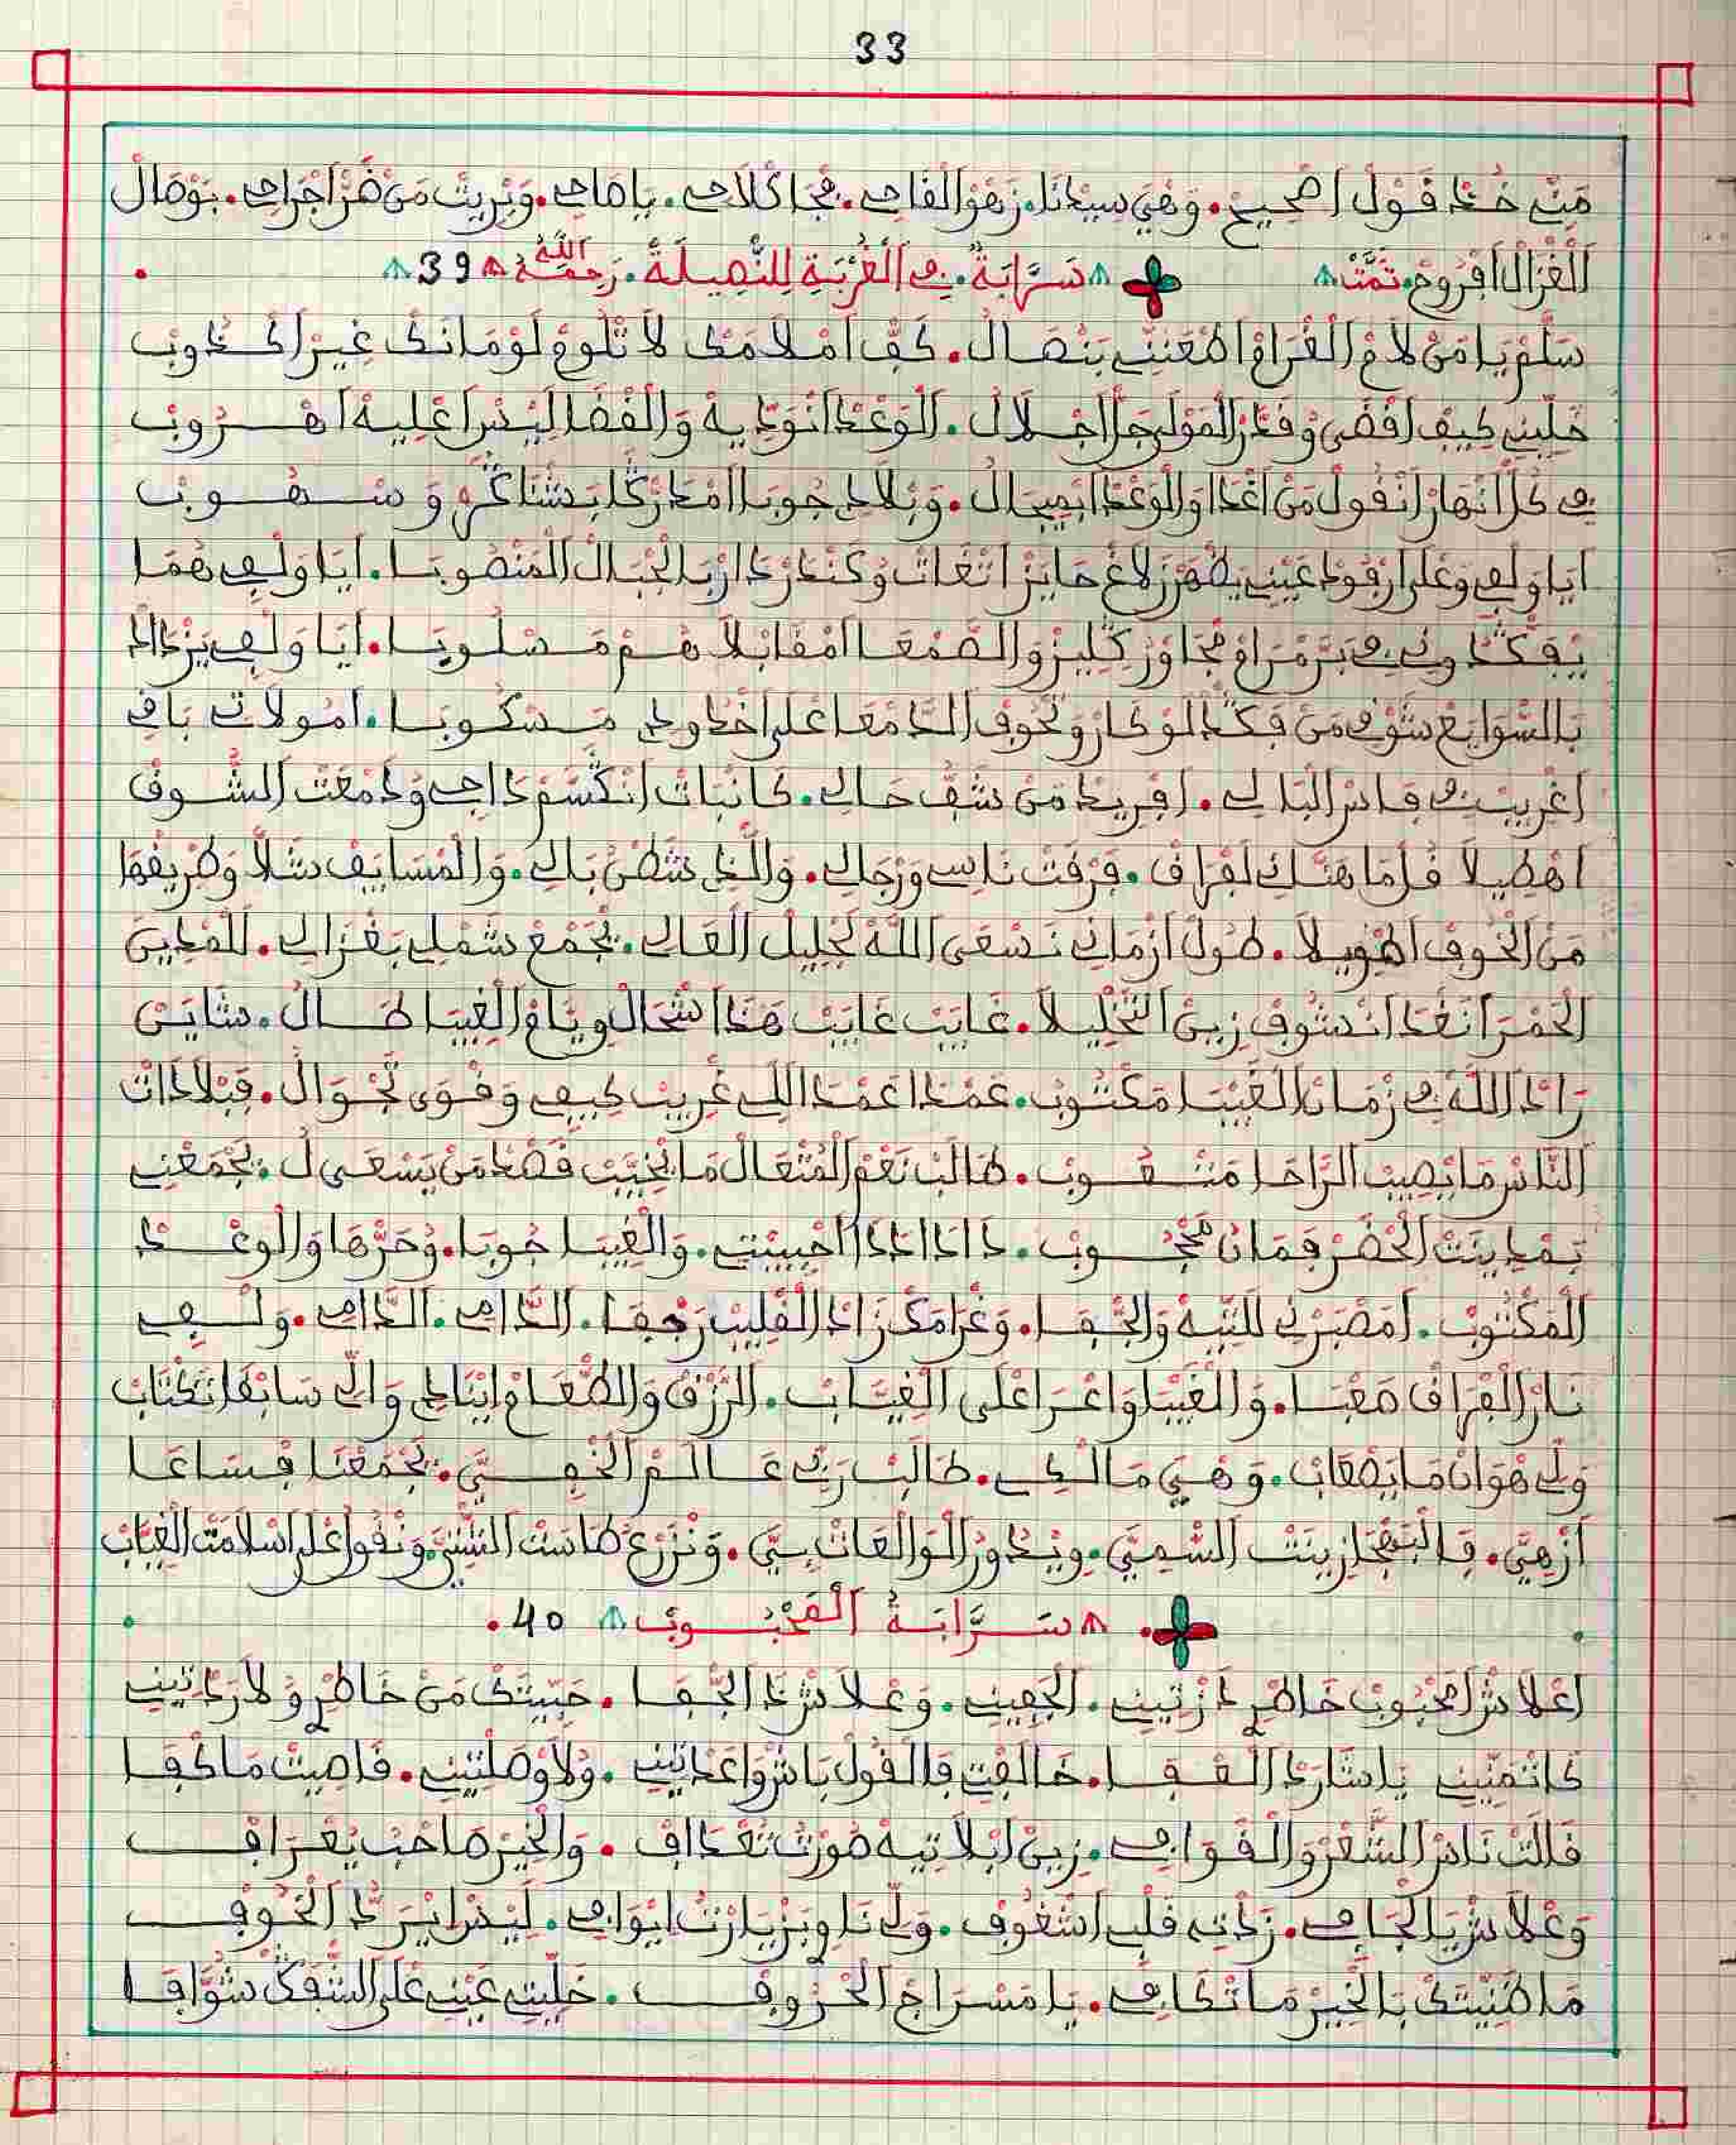 33
مَنِّي خُذْ قَوْلْ اصْحِيحْ. وَهْيَ سِيدْنَا. زَهْوْ الْقَاحِي. يَا صَاحِي. وَبْرِيتْ مَنْ ضَرّْ اجْرَاحِي. بَوْصَالْ
الْغْزَالْ افْرُوحْ. تَمَّتْ سَرَّابَةٌ. فِي الْغُرْبَةِ لِلنَّصِيلَةْ. رَحِمَهُ اللَّهُ 39
سَلَّمْ يَا مَنْ لَامْ الْغْرَامْ اطْعَنِّي بَنْصَالْ. كَفّْ امْلَامَكْ لَا تْلُومْ لَوْمَانَكْ غِيرْ اكْذُوبْ
خَلِّينِي كِيفْ اقْضَى وْقَدَّرْ الْمَوْلَى جَلّْ اجْلَالْ. الْوَعْدْ انْوَدِّيهْ وَالْقْضَا لِيسْ اعْلِيهْ اهْرُوبْ
فِي كُلّْ انْهَارْ انْقُولْ مَنْ اغْدَا وَالْوَعْدْ ابْصِيحَالْ. وَبْلَادِي جُوبَا امْدَرّْكَا بَشْنَاكَرْ وَسْهُوبْ
ايَا وَلْفِي وَعْلَى ارْقُودْ عَيْنِي يَظْهَرْ لَاغْ حَايَزْ اتْغَاتْ وْكَنْدَرْ دَارْ بَالْجْبَالْ الْمَنْصُوبَا. ايَا وَلْفِي هُمَا
يْفَكّْدُونِي فِي بَرّْ مَرَّاكْ مْجَاوْرْ كِلِيزْ وَالصَّمْعَا امْقَابْلَاهُمْ مَسْلُوبَا. ايَا وَلْفِي يَزْدَادْ
بَالسْوَايَعْ شَوْقِي مَنْ فَكْدْ الْوْكَارْ وَتْحُوفْ الدَّمْعَا عْلَى اخْدُودِي مَسْكُوبَا. امُولَاتِي بَاقِي
اغْرِيبْ فِي فَاسْ الْبَالِي. افْرِيدْ مَنْ شَقّْ حَالِي. كَانْبَاتْ انْكَسَّمْ دَاجِي وْدَمْعَتْ الشُّوقْ
اهْطِيلَا قُلْ مَا هَنَّاكْ لَفْرَاقْ. فَرْقَتْ نَاسِي وَرْجَالِي. وَالَّذِي شَطَّنْ بَالِي. وَالْمْسَايَفْ شَلَّا وَطْرِيقْهَا
مَنْ الْخُوفْ اطْوِيلَا. طُولْ ازْمَانِي نَسْعَى اللَّهْ لَجْلِيلْ الْعَالِي. يَجْمَعْ شَمْلِي بَغْزَالِي. لَلْمْدِينْ
الْحَمْرَا نَغْدَا انْشُوفْ زِينْ النَّخْلِيلَا. غَايَبْ غَايَبْ هَذَا اشْحَالْ وِيَّامْ الْغِيبَا طَالْ. شَايَنْ
رَادْ اللَّهْ فِي زْمَانْ الْغَيْبَا مَكْتُوبْ. عَمْدَا عَمْدَا اللِّي غْرِيبْ كِيفِي وَقْوَى تَجْوَالْ. فَبْلَادَاتْ
النَّاسْ مَا يْصِيبْ الرَّاحَا مَتْعُوبْ. طَالَبْ نَعْمْ الْمُتْعَالْ مَا يْخَيَّبْ قَصْدْ مَنْ يَسْعَى لْ. يَجْمَعْنِي
بَمْدِينَتْ الْحْضَرْ فَمَانْ مَحْجُوبْ. دَادَا دَادَا احْبِيبْتِي. وَالْغِيبَا صُوبَا. وْحَرّْهَا وَالْوَعْدْ
الْمَكْتُوبْ. امَصْبَرْنِي لَلتِّيهْ وَالْجْفَا. وَغْرَامَكْ زَادْ الْقْلِيبْ رَجْفَا. الدَّامِي. الدَّامِي. وَلْفِي
نَارْ الْفْرَاقْ صَعْبَا. وَالْغَيْبَا وَاعْرَا عْلَى الْغِيَّابْ. الرَّزْقْ وَالطّْعَامْ ايْنَادِي وَالِّي سَابْقَا تَكْتَابْ
وَلِّي هْوَانْ مَا يَصْعَابْ. وَهْيَ مَالْكِي. طَالَبْ رَبِّي عَالَمْ الْخْفِيَّ. يَجْمَعْنَا فْسَاعَا
ازْهِيَّ. فَالْبَهْجَا زِينَتْ السّْمِيَّ. وِيْدُورْ الْوَالْعَاتْ بِيَّ. وَنْزَرَّعْ طَاسَتْ السّْنِيَّ وَنْقُولْ عْلَى اسْلَامَتْ الْغِيَابْ
سَرَّابَةُ الْمَحْبُوبْ 40
اعْلَاشْ امَحْبُوبْ خَاطْرِي دَزْتِينِي. الْجَفِينِي. وَعْلَاشْ ذَا الْجْفَا. حَبِّيتَكْ مَنْ خَاطْرِي وْلَا رَدْتِينِي
كَاتْمَنِّينِي يَا شَارَدْ الْعْفَا. خَالَفْتِي فَالْقُولْ بَاشْ وَاعَدْتِينِي. وْلَا وْصَلْتِينِي. قَاصِيتْ مَا كْفَى
قَالَتْ نَاسْ الشّْعَرْ وَالْقْوَافِي. زِينْ ابْلَا تِيهْ صُورْتُ تَعْدَافْ. وَالْخِيرْ صَاحْبُ يُعْرَافْ
وَعْلَاشْ يَا لْجَافِي. زَدْتِي قَلْبِي اشْغُوفْ. وَلِّي نَاوِي بَزْيَارْتُ ايْوَافِي. لِيسْ ايْرَدُّ الْخُوفْ
مَا ظَنِّيتَكْ بَالْخِيرْ مَا تْكَافِي. يَا مَسْرَاجْ الْحْرُوفْ. خَلِّيتِي عَيْنِي عْلَى الشّْفَقْ شَوَّافَا